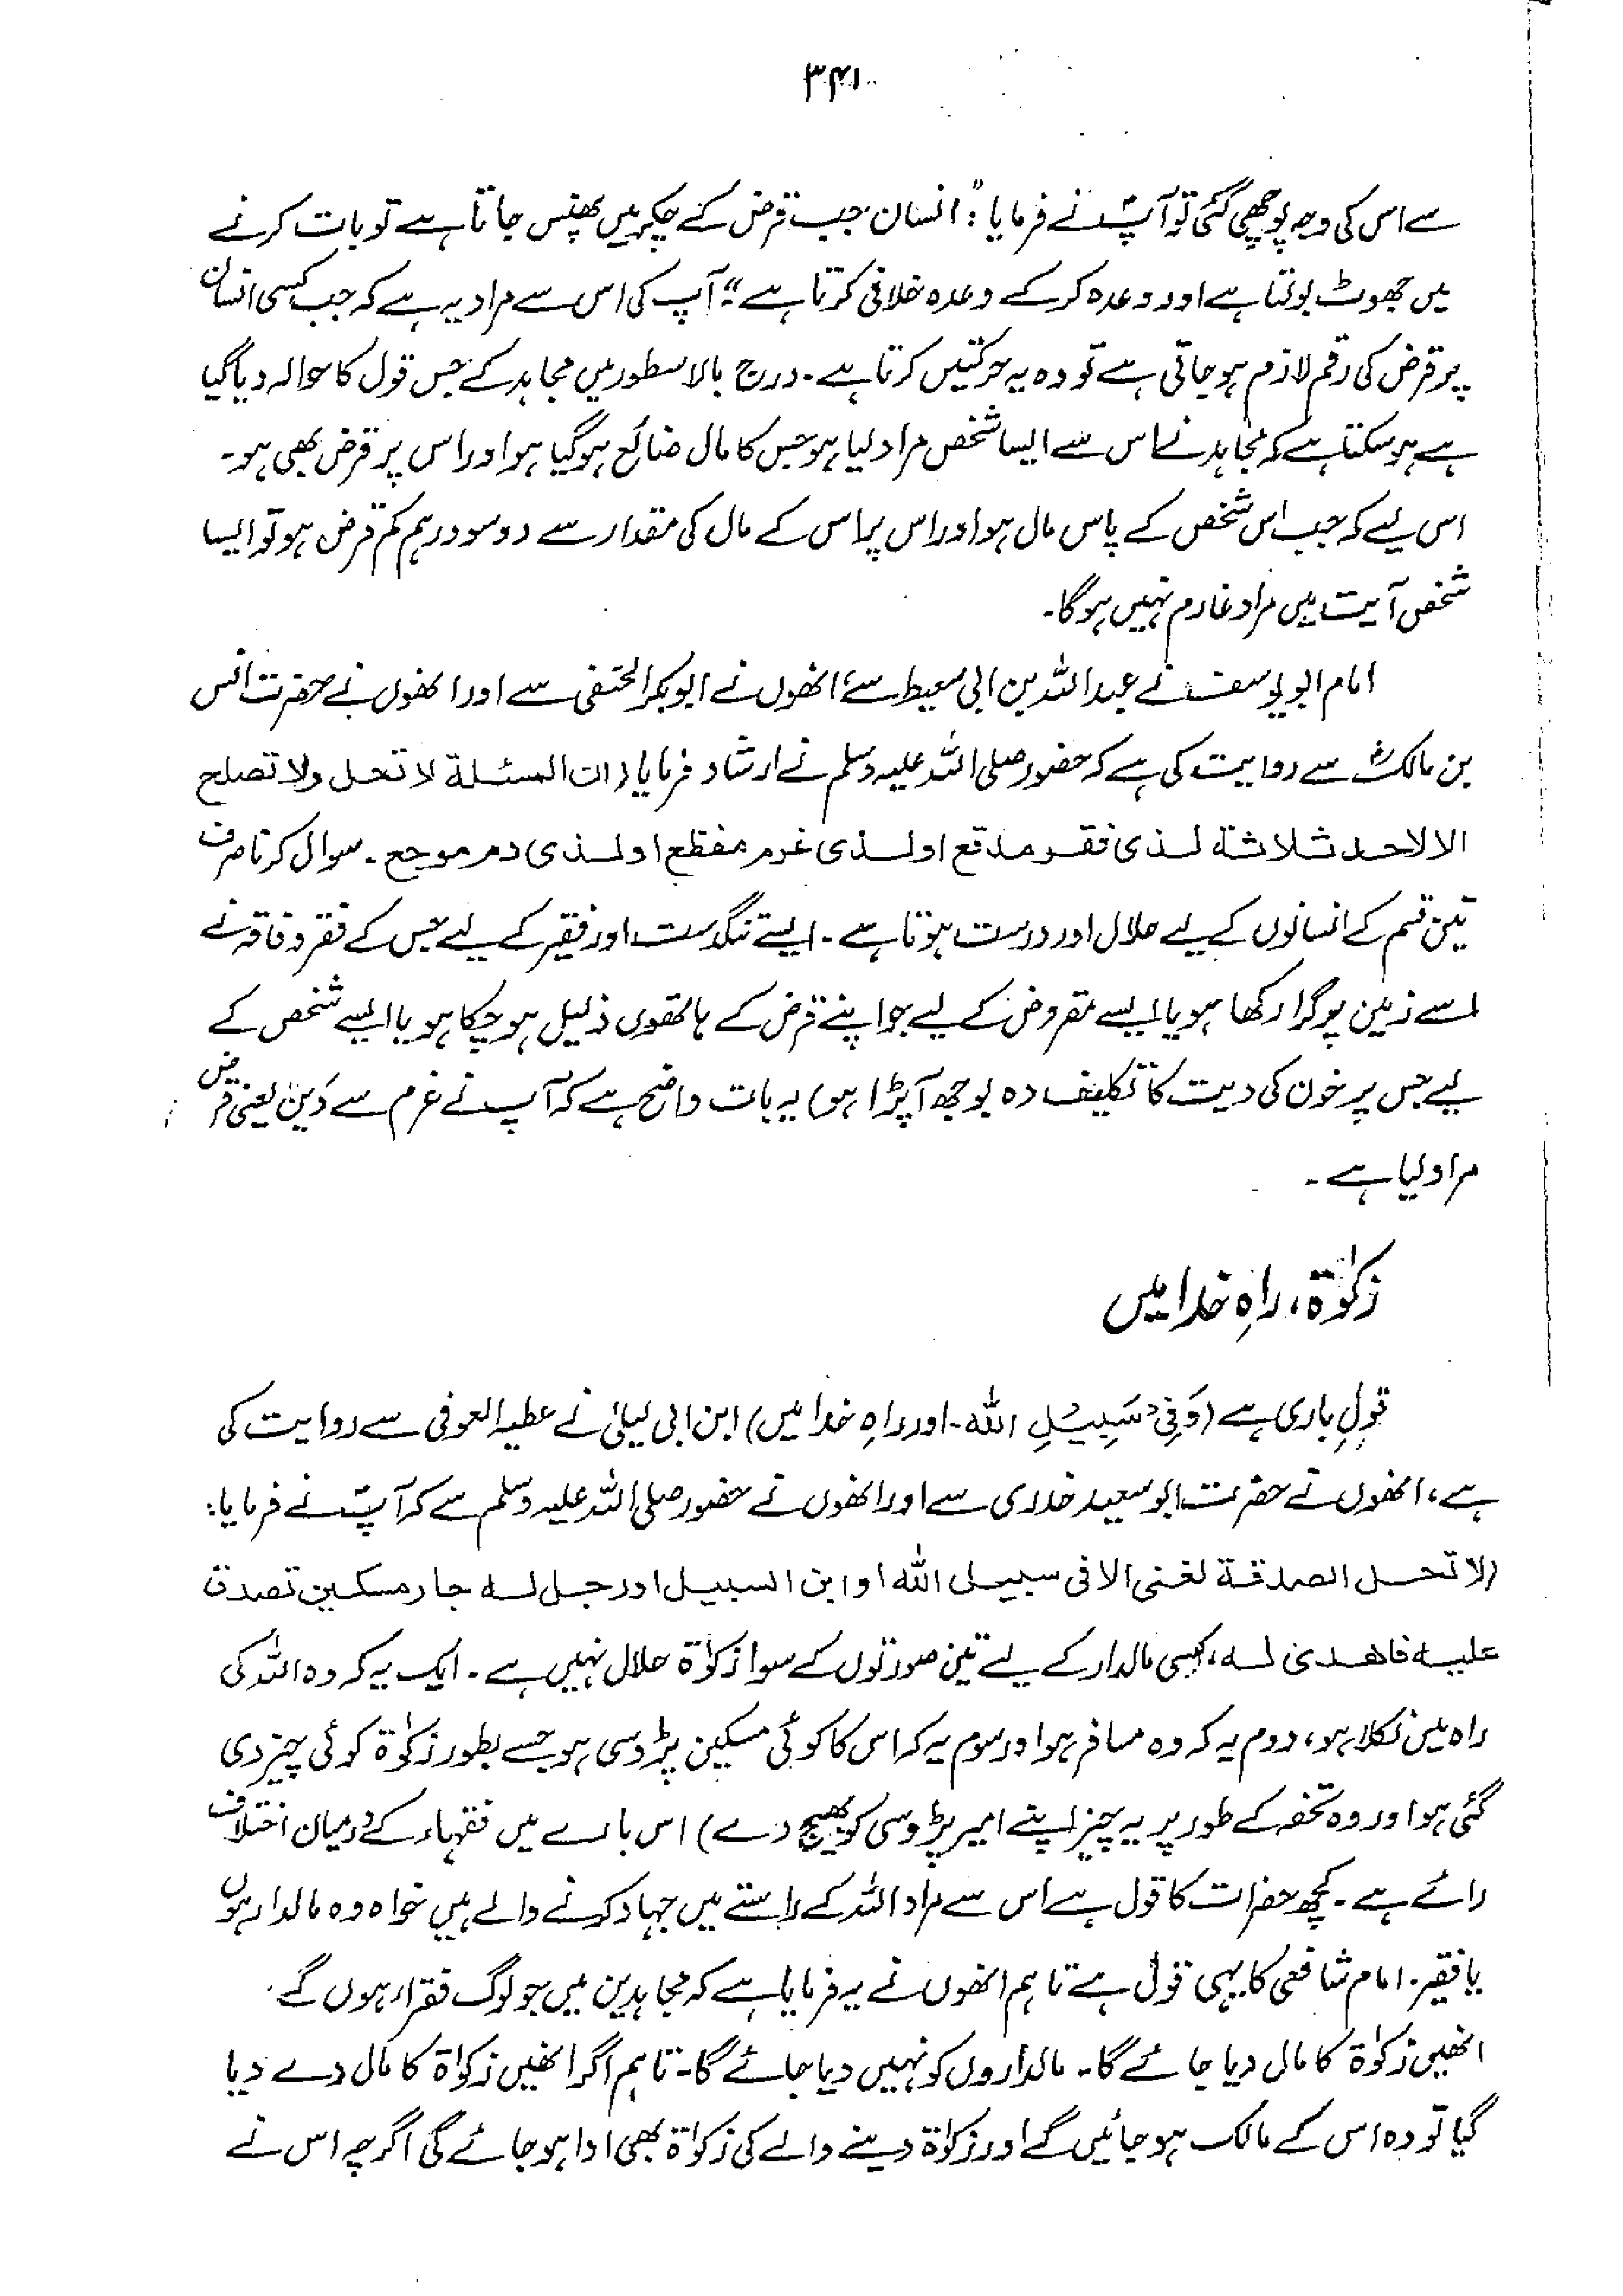 ۳۴۱
سے اس کی وجہ پوچھی گئی تو آپؐ نے فرمایا: "انسان جب قرض کے چکر میں پھنس جاتا ہے تو بات کرنے
میں جھوٹ بولتا ہے اور وعدہ کرکے وعدہ خلافی کرتا ہے" آپ کی اس سے مراد یہ ہے کہ جب کسی انسان
پر قرض کی رقم لازم ہو جاتی ہے تو وہ یہ حرکتیں کرتا ہے۔ درج بالا سطور میں مجاہد کے جس قول کا حوالہ دیا گیا
ہے ہو سکتا ہے کہ مجاہد نے اس سے ایسا شخص مراد لیا ہو جس کا مال ضائع ہو گیا ہو اور اس پر قرض بھی ہو۔
اس لیے کہ جب اس شخص کے پاس مال ہو اور اس پر اس کے مال کی مقدار سے دو سو درہم کم قرض ہو تو ایسا
شخص آیت میں مراد غارم نہیں ہوگا۔
امام ابو یوسف نے عبداللہ بن ابی سمیط سے، انھوں نے ابوبکر الحنفی سے اور انھوں نے حضرت انس
بن مالکؓ سے روایت کی ہے کہ حضور صلی اللہ علیہ وسلم نے ارشاد فرمایا (ان المسئلۃ لا تحل ولا تصلح
الا لاحد ثلاثۃ لذی فقر مدقع او لذی غرم مفظع او لذی دم موجع۔ سوال کرنا صرف
تین قسم کے انسانوں کے لیے حلال اور درست ہوتا ہے۔ ایسے تنگدست اور فقیر کے لیے جس کے فقر و فاقہ نے
اسے زمین پر گرا رکھا ہو یا ایسے مقروض کے لیے جو اپنے قرض کے ہاتھوں ذلیل ہو چکا ہو یا ایسے شخص کے
لیے جس پر خون کی دیت کا تکلیف دہ بوجھ آپڑا ہو) یہ بات واضح ہے کہ آپ نے غرم سے دَین یعنی قرض
مراد لیا ہے۔
زکوٰۃ، راہِ خدا میں
قولِ باری ہے (وَفِیْ سَبِیْلِ اللہ۔ اور راہِ خدا میں) ابن ابی لیلیٰ نے عطیہ العوفی سے روایت کی
ہے، انھوں نے حضرت ابو سعید خدری سے اور انھوں نے حضور صلی اللہ علیہ وسلم سے کہ آپؐ نے فرمایا:
(لا تحل الصدقۃ لغنی الا فی سبیل اللہ او ابن السبیل او رجل لہ جار مسکین تصدق
علیہ فاھدی لہ، کسی مالدار کے لیے تین صورتوں کے سوا زکوٰۃ حلال نہیں ہے۔ ایک یہ کہ وہ اللہ کی
راہ میں نکلا ہو، دوم یہ کہ وہ مسافر ہو اور سوم یہ کہ اس کا کوئی مسکین پڑوسی ہو جسے بطور زکوٰۃ کوئی چیز دی
گئی ہو اور وہ تحفہ کے طور پر یہ چیز اپنے امیر پڑوسی کو بھیج دے) اس بارے میں فقہاء کے درمیان اختلاف
رائے ہے۔ کچھ حضرات کا قول ہے اس سے مراد اللہ کے راستے میں جہاد کرنے والے ہیں خواہ وہ مالدار ہوں
یا فقیر۔ امام شافعی کا یہی قول ہے تاہم انھوں نے یہ فرمایا ہے کہ مجاہدین میں جو لوگ فقراء ہوں گے
انھیں زکوٰۃ کا مال دیا جائے گا۔ مالداروں کو نہیں دیا جائے گا۔ تاہم اگر انھیں زکوٰۃ کا مال دے دیا
گیا تو وہ اس کے مالک ہو جائیں گے اور زکوٰۃ دینے والے کی زکوٰۃ بھی ادا ہو جائے گی اگرچہ اس نے